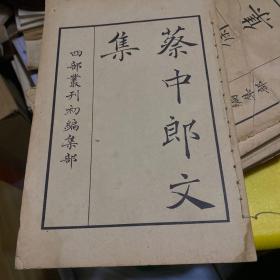 蔡中郎文
集
四部叢刊初編集部